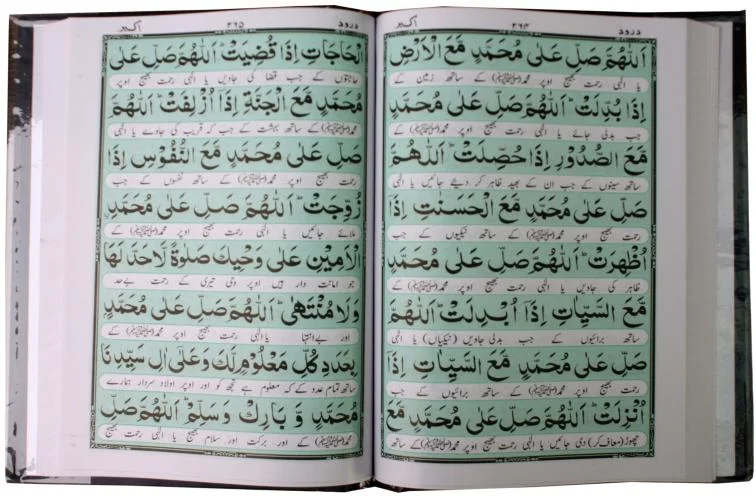 درود ۲۶۴ اکبر
اَللّٰهُمَّ صَلِّ عَلٰى مُحَمَّدٍ مَّعَ الْاَرْضِ
یا الٰہی رحمت بھیج اوپر محمد(ﷺ) کے ساتھ زمین کے
اِذَا بُدِّلَتْ اَللّٰهُمَّ صَلِّ عَلٰى مُحَمَّدٍ
جب بدلی جائے یا الٰہی رحمت بھیج اوپر محمد(ﷺ) کے
مَّعَ الصُّدُوْرِ اِذَا حُصِّلَتْ اَللّٰهُمَّ
ساتھ سینوں کے جب ان کے بھید ظاہر کر دیئے جائیں یا الٰہی
صَلِّ عَلٰى مُحَمَّدٍ مَّعَ الْحَسَنٰتِ اِذَا
رحمت بھیج اوپر محمد(ﷺ) کے ساتھ نیکیوں کے جب
اُظْهِرَتْ اَللّٰهُمَّ صَلِّ عَلٰى مُحَمَّدٍ
ظاہر کی جاویں یا الٰہی رحمت بھیج اوپر محمد(ﷺ) کے
مَّعَ السَّيِّاٰتِ اِذَا اُبْدِلَتْ اَللّٰهُمَّ
ساتھ برائیوں کے جب بدلی جاویں (نیکیاں) یا الٰہی
صَلِّ عَلٰى مُحَمَّدٍ مَّعَ السَّيِّاٰتِ اِذَا
رحمت بھیج اوپر محمد(ﷺ) کے ساتھ برائیوں کے جب
اُنْزِلَتْ اَللّٰهُمَّ صَلِّ عَلٰى مُحَمَّدٍ مَّعَ
چھوڑ(معاف کر) دی جائیں یا الٰہی رحمت بھیج اوپر محمد(ﷺ) کے ساتھ
درود ۲۶۵ اکبر
الْحَاجَاتِ اِذَا قُضِيَتْ اَللّٰهُمَّ صَلِّ عَلٰى
حاجتوں کے جب قضا کی جاویں یا الٰہی رحمت بھیج اوپر
مُحَمَّدٍ مَّعَ الْجَنَّةِ اِذَا اُزْلِفَتْ اَللّٰهُمَّ
محمد(ﷺ) کے ساتھ بہشت کے جب کہ قریب کی جاوے یا الٰہی
صَلِّ عَلٰى مُحَمَّدٍ مَّعَ النُّفُوْسِ اِذَا
رحمت بھیج اوپر محمد(ﷺ) کے ساتھ نفسوں کے جب
زُوِّجَتْ اَللّٰهُمَّ صَلِّ عَلٰى مُحَمَّدٍ
ملائے جائیں یا الٰہی رحمت بھیج اوپر محمد(ﷺ)
الْاَمِيْنِ عَلٰى وَحْيِكَ صَلٰوةً لَّاحَدَ لَهَا
جو امانت دار ہیں اوپر وحی تیری کے رحمت بےحد
وَلَا مُنْتَهٰى اَللّٰهُمَّ صَلِّ عَلٰى مُحَمَّدٍ
اور بے انتہا یا الٰہی رحمت بھیج اوپر محمد(ﷺ) کے
بِعَدَدِ كُلِّ مَعْلُوْمٍ لَّكَ وَعَلٰى اٰلِ سَيِّدِنَا
ساتھ تمام عدد کے کہ معلوم ہے تجھ کو اور اوپر اولاد سردار ہمارے
مُحَمَّدٍ وَّ بَارِكْ وَسَلِّمْ اَللّٰهُمَّ صَلِّ
محمد(ﷺ) کے اور برکت اور سلام بھیج یا الٰہی رحمت بھیج